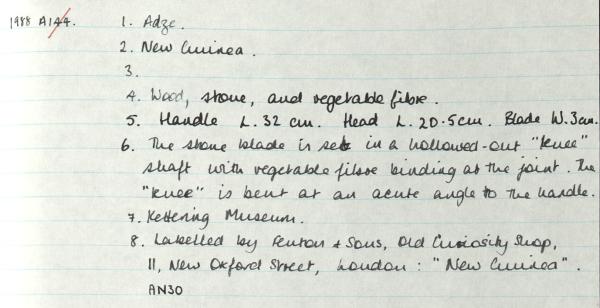 1988 A144. 1. Adze.
2. New Guinea.
3.
4. Wood, stone, and vegetable fibre.
5. Handle L. 32 cm. Head L. 20.5cm. Blade W. 3cm.
6. The stone blade is set in a hollowed-out "knee"
shaft with vegetable fibre binding at the joint. The
"knee" is bent at an acute angle to the handle.
7. Kettering Museum.
8. Labelled by Fenton & Sons, Old Curiosity Shop,
11, New Oxford Street, London : "New Guinea".
AN30